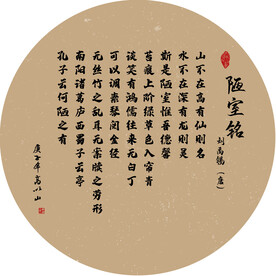 陋室铭
刘禹锡（唐）
山不在高有仙则名
水不在深有龙则灵
斯是陋室惟吾德馨
苔痕上阶绿草色入帘青
谈笑有鸿儒往来无白丁
可以调素琴阅金经
无丝竹之乱耳无案牍之劳形
南阳诸葛庐西蜀子云亭
孔子云何陋之有